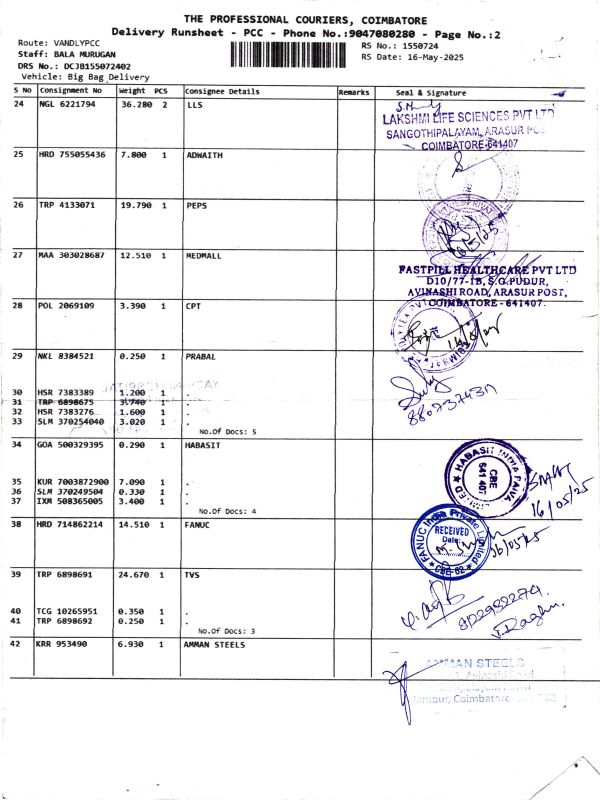 THE PROFESSIONAL COURIERS, COIMBATORE
Delivery Runsheet - PCC - Phone No.:9047080280 - Page No.:2
Route: VANDLYPCC
Staff: BALA MURUGAN
DRS No.: DCJB155072402
Vehicle: Big Bag Delivery
RS No.: 1550724
RS Date: 16-May-2025
S No Consignment No Weight PCS Consignee Details Remarks Seal & Signature
24 NGL 6221794 36.280 2 LLS
LAKSHMI LIFE SCIENCES PVT LTD
SANGOTHIPALAYAM, ARASUR POST
COIMBATORE-641407
25 HRD 755055436 7.800 1 ADWAITH
26 TRP 4133071 19.790 1 PEPS
27 MAA 303028687 12.510 1 MEDMALL
FASTPILL HEALTHCARE PVT LTD
D10/77-1B, S.G.PUDUR,
AVINASHI ROAD, ARASUR POST,
COIMBATORE - 641407.
28 POL 2069109 3.390 1 CPT
29 NKL 8384521 0.250 1 PRABAL
30 HSR 7383389 1.200 1 .
31 TRP 6898675 3.740 1 .
32 HSR 7383276 1.600 1 .
33 SLM 370254040 3.020 1 .
No.Of Docs: 5
34 GOA 500329395 0.290 1 HABASIT
HABASIT INDIA PRIVATE LIMITED
CBE
641 407
16/05/25
35 KUR 7003872900 7.090 1 .
36 SLM 370249504 0.330 1 .
37 IXM 508365005 3.400 1 .
No.Of Docs: 4
38 HRD 714862214 14.510 1 FANUC
FANUC India Private Limited
RECEIVED
Date:
CBE-62
16/05/25
39 TRP 6898691 24.670 1 TVS
40 TCG 10265951 0.350 1 .
41 TRP 6898692 0.250 1 .
No.Of Docs: 3
J. Raghu.
42 KRR 953490 6.930 1 AMMAN STEELS
AMMAN STEELS